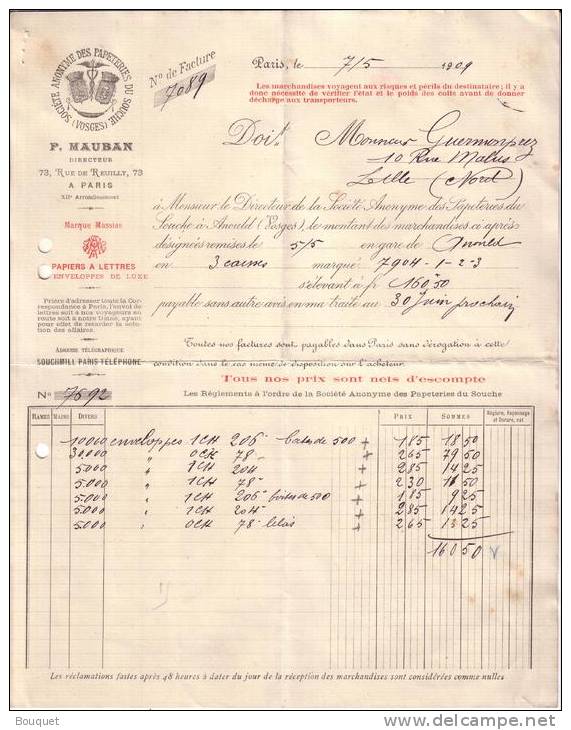 SOCIÉTÉ ANONYME DES PAPETERIES DU SOUCHE
(VOSGES)
P. MAUBAN
DIRECTEUR
73, RUE DE REUILLY, 73
A PARIS
XIIe Arrondissement
Marque Massias
PAPIERS A LETTRES
ENVELOPPES DE LUXE
Prière d'adresser toute la Cor-
respondance à Paris, l'envoi de
lettres soit à nos voyageurs en
route soit à notre Usine, ayant
pour effet de retarder la solu-
tion des affaires.
ADRESSE TÉLÉGRAPHIQUE
SOUCHMILL PARIS TÉLÉPHONE
No 7692
No de Facture
7089
Paris, le 7/5 1909
Les marchandises voyagent aux risques et périls du destinataire; il y a
donc nécessité de vérifier l'état et le poids des colis avant de donner
décharge aux transporteurs.
Doit Monsieur
10 Rue Malus
Lille (Nord)
à Monsieur le Directeur de la Société Anonyme des Papeteries du
Souche à Anould (Vosges), le montant des marchandises ci-après
désignées remises le 5/5 en gare de Anould
en 3 caisses marqué 7904-1-2-3
s'élevant à fr 160,50
payable sans autre avis en ma traite au 30 Juin prochain
Toutes nos factures sont payables dans Paris sans dérogation à cette
condition dans le cas même de disposition sur l'acheteur.
Tous nos prix sont nets d'escompte
Les Règlements à l'ordre de la Société Anonyme des Papeteries du Souche
RAMES MAINS DIVERS PRIX SOMMES Réglure, Façonnage et Dorure, net.
10000 enveloppes 1CH 206 boites de 500 + 185 18 50
30,000 " 0CH 78 " + 265 79 50
5.000 " 1CH 204 + 285 14 25
5.000 " 1CH 78 " + 230 11 50
5.000 " 1CH 206 boites de 500 + 185 9 25
5.000 " 1CH 204 + 285 14 25
5.000 " 0CH 78 lilas + 265 13 25
160 50
Les réclamations faites après 48 heures à dater du jour de la réception des marchandises sont considérées comme nulles
Bouquet
www.delcampe.net